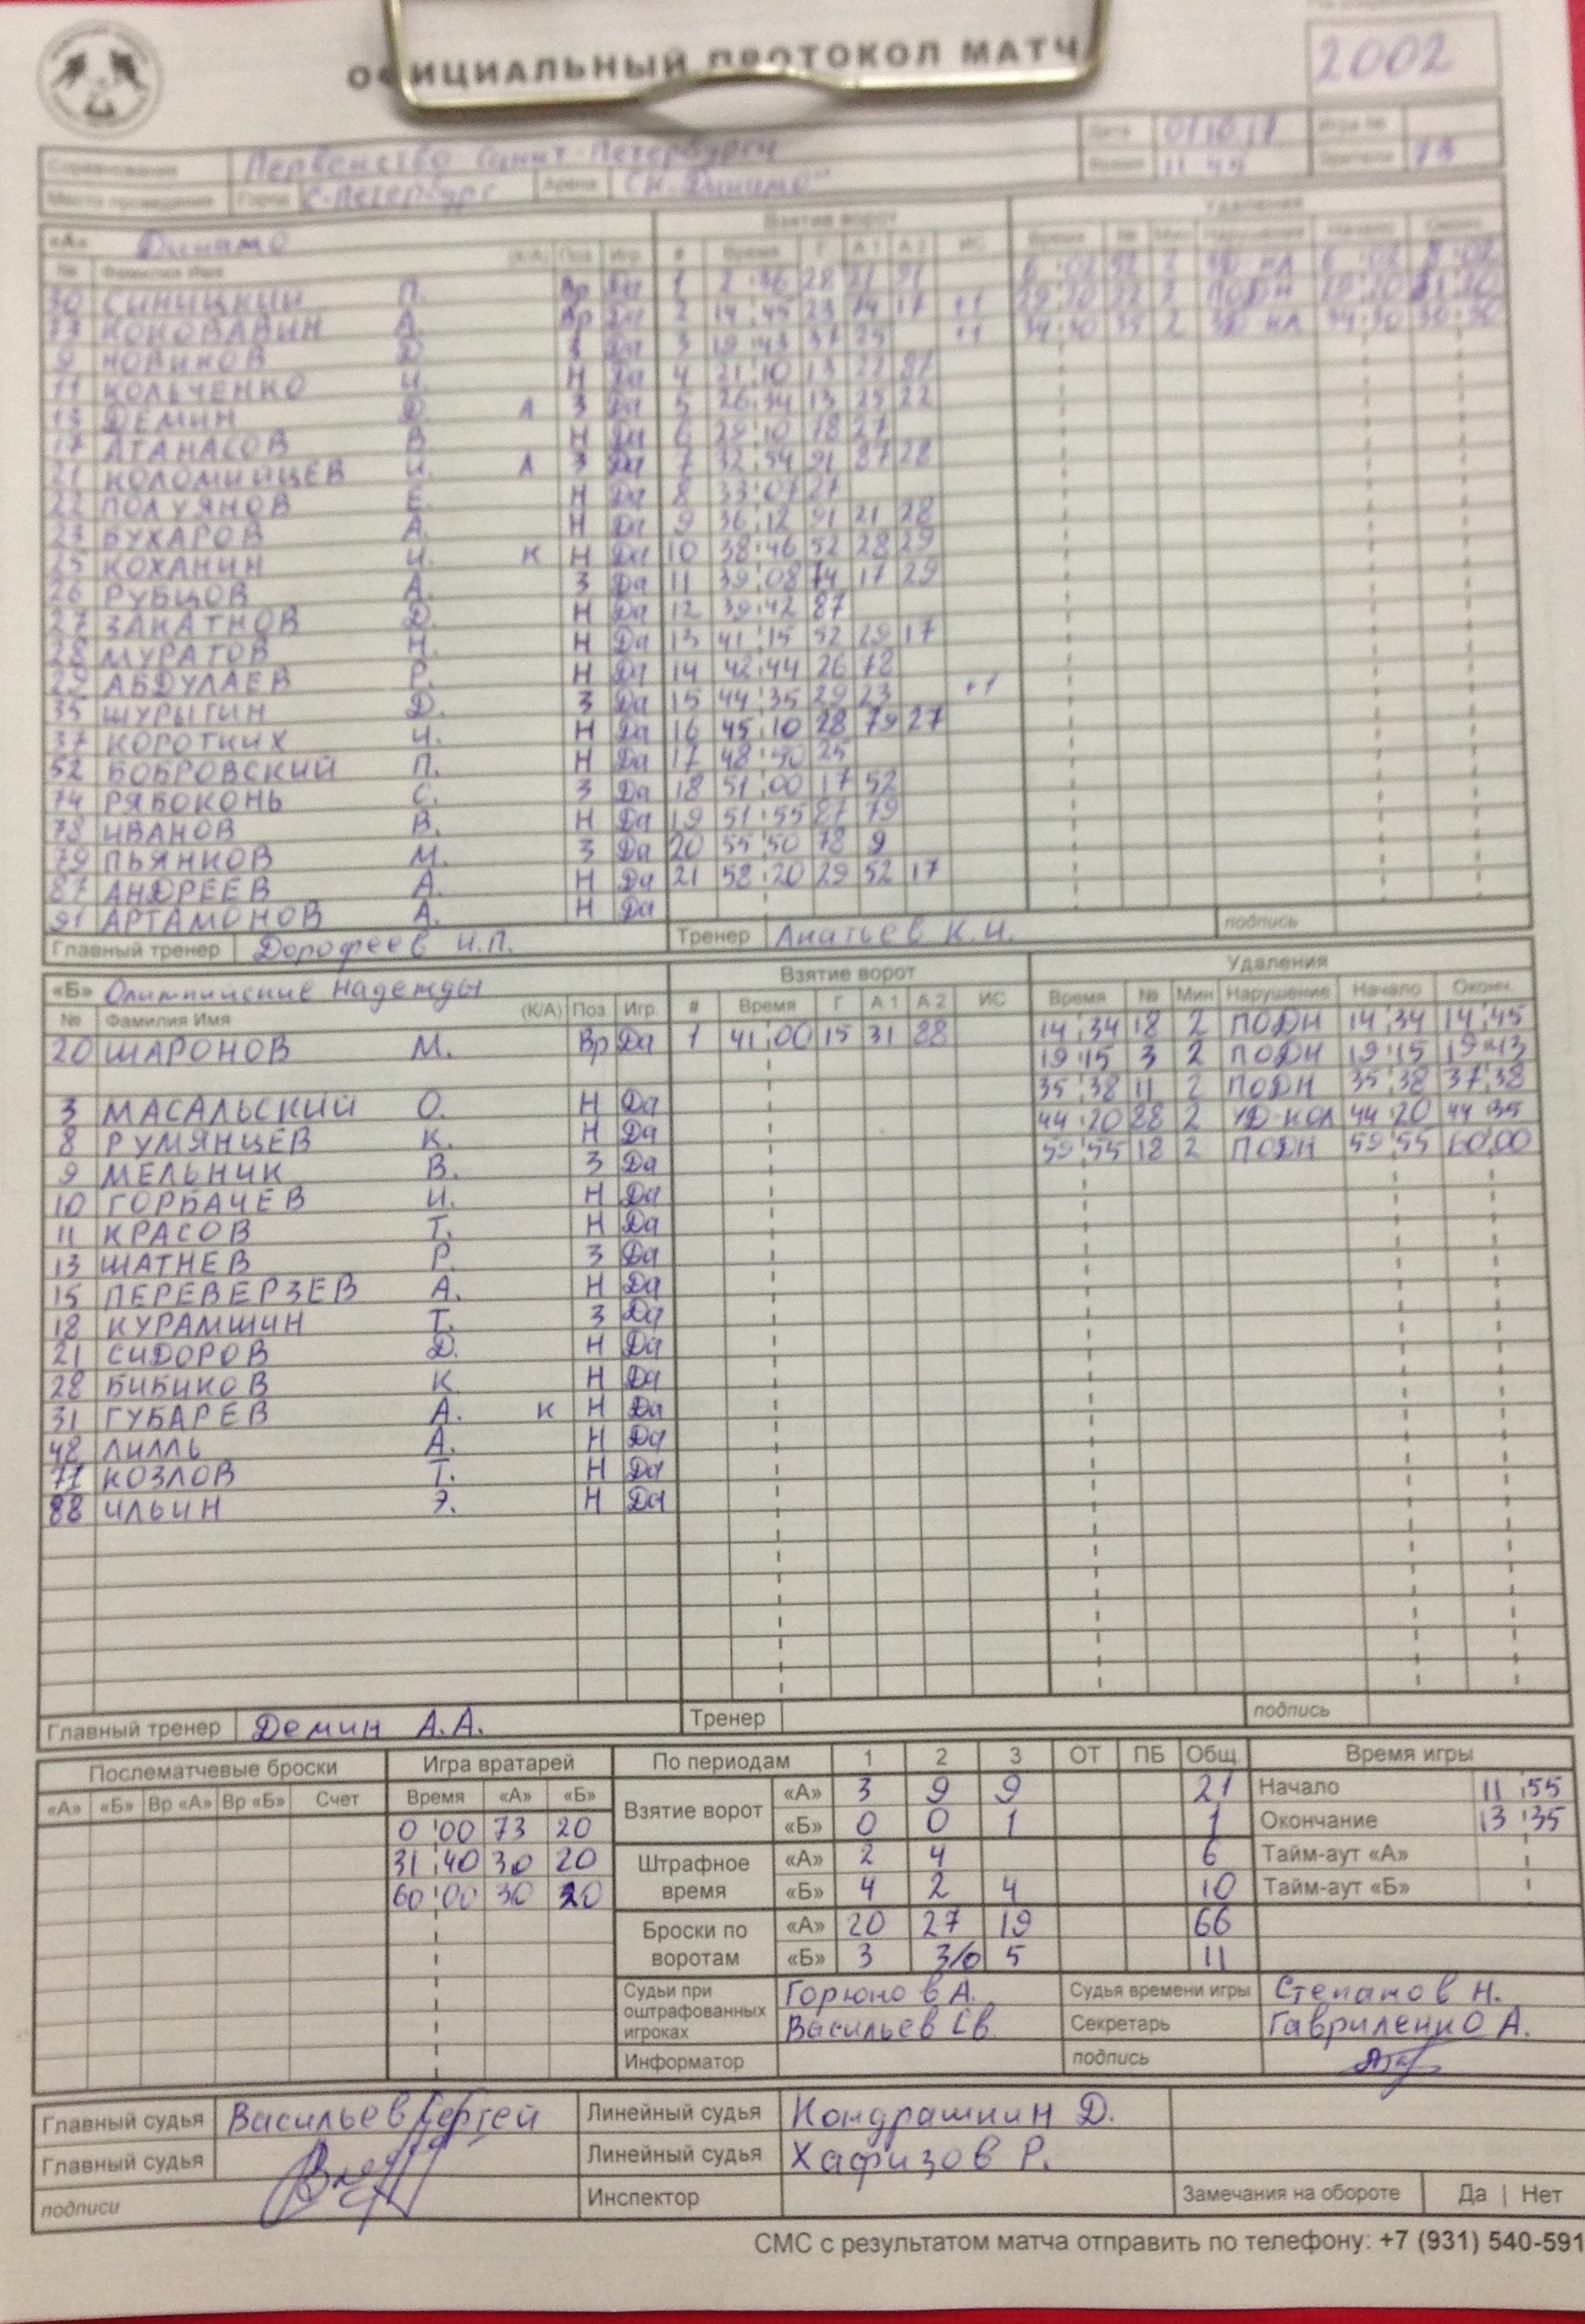 ОФИЦИАЛЬНЫЙ ПРОТОКОЛ МАТЧ
2002
Соревнование Первенство Санкт-Петербурга Дата 01 10 17 Игра №
Место проведения Город С-Петербург Арена СК "Динамо" Время 11 45 Зрители
«А» Динамо Взятие ворот Удаления
№ Фамилия Имя (К/А) Поз Игр # Время Г А1 А2 ИС Время № Мин Нарушение Начало Оконч.
30 СИНИЦКИЙ П. Вр Да 1 2:36 28 21 91 6:02 52 2 6:02 8:02
73 КОНОВАЛИН А. Вр Да 2 14:45 23 74 17 +1 29:20 22 2 ПОДН 29:20 31:20
9 НОВИКОВ Д. З Да 3 19:43 37 25 +1 34:30 35 2 34:30 36:30
11 КОЛЬЧЕНКО И. Н Да 4 21:10 13 22 87
13 ДЕМИН Д. А З Да 5 26:34 13 25 22
17 АТАНАСОВ В. Н Да 6 29:10 78 27
21 КОЛОМИЙЦЕВ И. А З Да 7 32:54 91 87 28
22 ПОЛУЯНОВ Е. Н Да 8 33:07 27
23 БУХАРОВ А. Н Да 9 36:12 91 21 28
25 КОХАНИН И. К Н Да 10 38:46 52 28 29
26 РУБЦОВ А. З Да 11 39:08 74 17 29
27 ЗАКАТНОВ Д. Н Да 12 39:42 87
28 МУРАТОВ Н. Н Да 13 41:15 52 29 17
29 АБДУЛАЕВ Р. Н Да 14 42:44 26 78
35 ШУРЫГИН Д. З Да 15 44:35 29 23 +1
37 КОРОТКИХ И. Н Да 16 45:10 28 79 27
52 БОБРОВСКИЙ П. Н Да 17 48:40 25
74 РЯБОКОНЬ С. З Да 18 51:00 17 52
78 ИВАНОВ В. Н Да 19 51:55 87 79
79 ПЬЯНКОВ М. З Да 20 55:50 78 9
87 АНДРЕЕВ А. Н Да 21 58:20 29 52 17
91 АРТАМОНОВ А. Н Да
Главный тренер Дорофеев И.П. Тренер Анатьев К.И. подпись
«Б» Олимпийские надежды Взятие ворот Удаления
№ Фамилия Имя (К/А) Поз Игр # Время Г А1 А2 ИС Время № Мин Нарушение Начало Оконч.
20 ШАРОНОВ М. Вр Да 1 41:00 15 31 88 14:34 18 2 ПОДН 14:34 14:45
19:15 3 2 ПОДН 19:15 19:43
35:38 11 2 ПОДН 35:38 37:38
3 МАСАЛЬСКИЙ О. Н Да 44:20 88 2 УД-КЛ 44:20 44 35
8 РУМЯНЦЕВ К. Н Да 59:55 18 2 ПОДН 59:55 60:00
9 МЕЛЬНИК В. З Да
10 ГОРБАЧЕВ И. Н Да
11 КРАСОВ Т. Н Да
13 ШАТНЕВ Р. З Да
15 ПЕРЕВЕРЗЕВ А. Н Да
18 КУРАМШИН Т. З Да
21 СИДОРОВ Д. Н Да
28 БИБИКОВ К Н Да
31 ГУБАРЕВ А. К Н Да
48 ЛИЛЛЬ А. Н Да
71 КОЗЛОВ Т. Н Да
88 ИЛЬИН Э. Н Да
Главный тренер Демин А.А. Тренер подпись
Послематчевые броски Игра вратарей По периодам 1 2 3 ОТ ПБ Общ. Время игры
«А» «Б» Вр «А» Вр «Б» Счет Время «А» «Б» Взятие ворот «А» 3 9 9 21 Начало 11:55
0:00 73 20 «Б» 0 0 1 1 Окончание 13:35
31:40 30 20 Штрафное время «А» 2 4 6 Тайм-аут «А»
60:00 30 20 «Б» 4 2 4 10 Тайм-аут «Б»
Броски по воротам «А» 20 27 19 66
«Б» 3 3/0 5 11
Судьи при оштрафованных игроках Горюнов А. Судья времени игры Степанов Н.
Васильев Св. Секретарь Гавриленко А.
Информатор подпись
Главный судья Васильев Сергей Линейный судья Кондрашкин Д.
Главный судья Линейный судья Хафизов Р.
подписи Инспектор Замечания на обороте Да | Нет
СМС с результатом матча отправить по телефону: +7 (931) 540-591